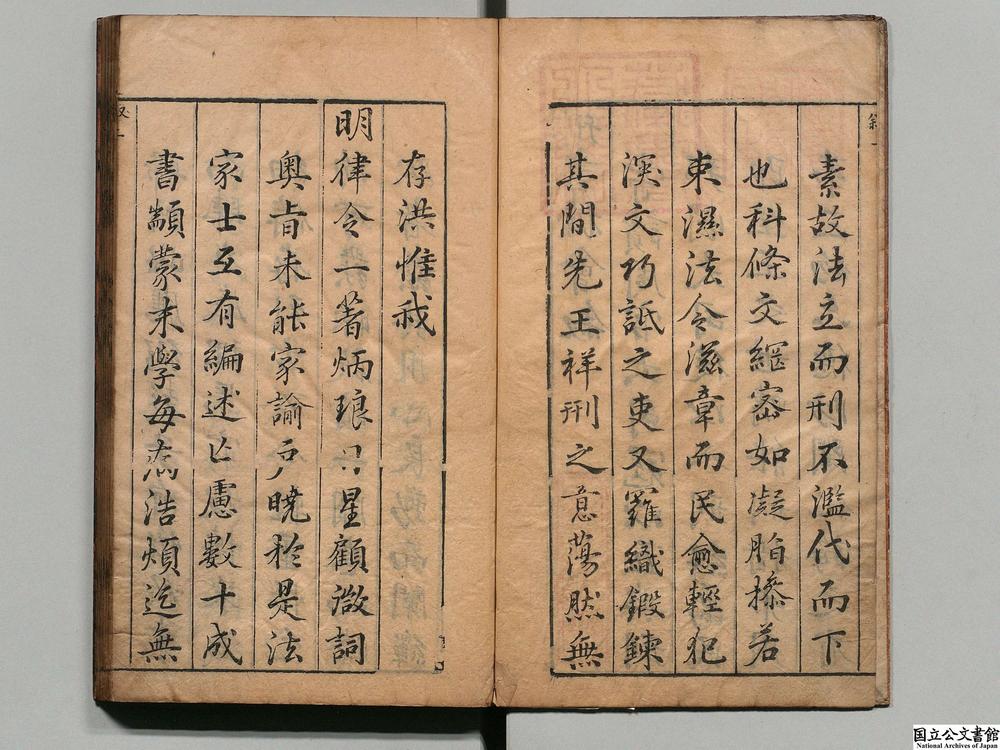 素故法立而刑不濫代而下
也科條文網密如凝脂操若
束濕法令滋章而民愈輕犯
深文巧詆之吏又羅織鍛鍊
其間先王祥刑之意蕩然無
存洪惟我
明律令一著炳琅日星顧微詞
奧旨未能家諭戶曉於是法
家士互有編述亡慮數十成
書顓蒙末學每病浩煩迄無
国立公文書館
National Archives of Japan